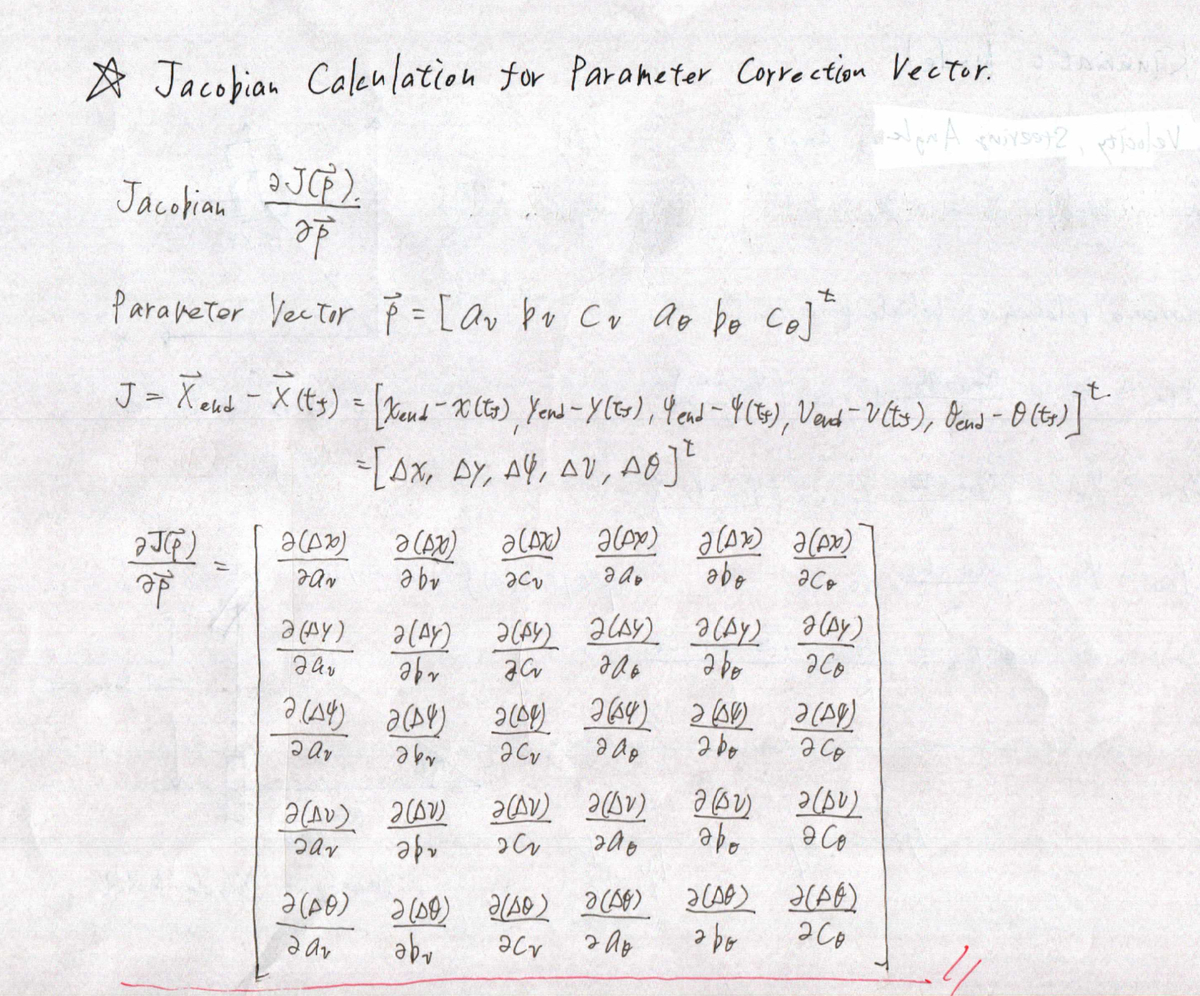 ☆ Jacobian Calculation for Parameter Correction Vector.
Jacobian ∂J(p⃗) / ∂p⃗
Parameter Vector p⃗ = [ a_v b_v c_v a_θ b_θ c_θ ]^t
J = X⃗_end - X⃗(t_f) = [x_end - x(t_f), y_end - y(t_f), ψ_end - ψ(t_f), v_end - v(t_f), θ_end - θ(t_f)]^t
= [Δx, Δy, Δψ, Δv, Δθ]^t
∂J(p⃗)/∂p⃗ = [ ∂(Δx)/∂a_v ∂(Δx)/∂b_v ∂(Δx)/∂c_v ∂(Δx)/∂a_θ ∂(Δx)/∂b_θ ∂(Δx)/∂c_θ
∂(Δy)/∂a_v ∂(Δy)/∂b_v ∂(Δy)/∂c_v ∂(Δy)/∂a_θ ∂(Δy)/∂b_θ ∂(Δy)/∂c_θ
∂(Δψ)/∂a_v ∂(Δψ)/∂b_v ∂(Δψ)/∂c_v ∂(Δψ)/∂a_θ ∂(Δψ)/∂b_θ ∂(Δψ)/∂c_θ
∂(Δv)/∂a_v ∂(Δv)/∂b_v ∂(Δv)/∂c_v ∂(Δv)/∂a_θ ∂(Δv)/∂b_θ ∂(Δv)/∂c_θ
∂(Δθ)/∂a_v ∂(Δθ)/∂b_v ∂(Δθ)/∂c_v ∂(Δθ)/∂a_θ ∂(Δθ)/∂b_θ ∂(Δθ)/∂c_θ ]